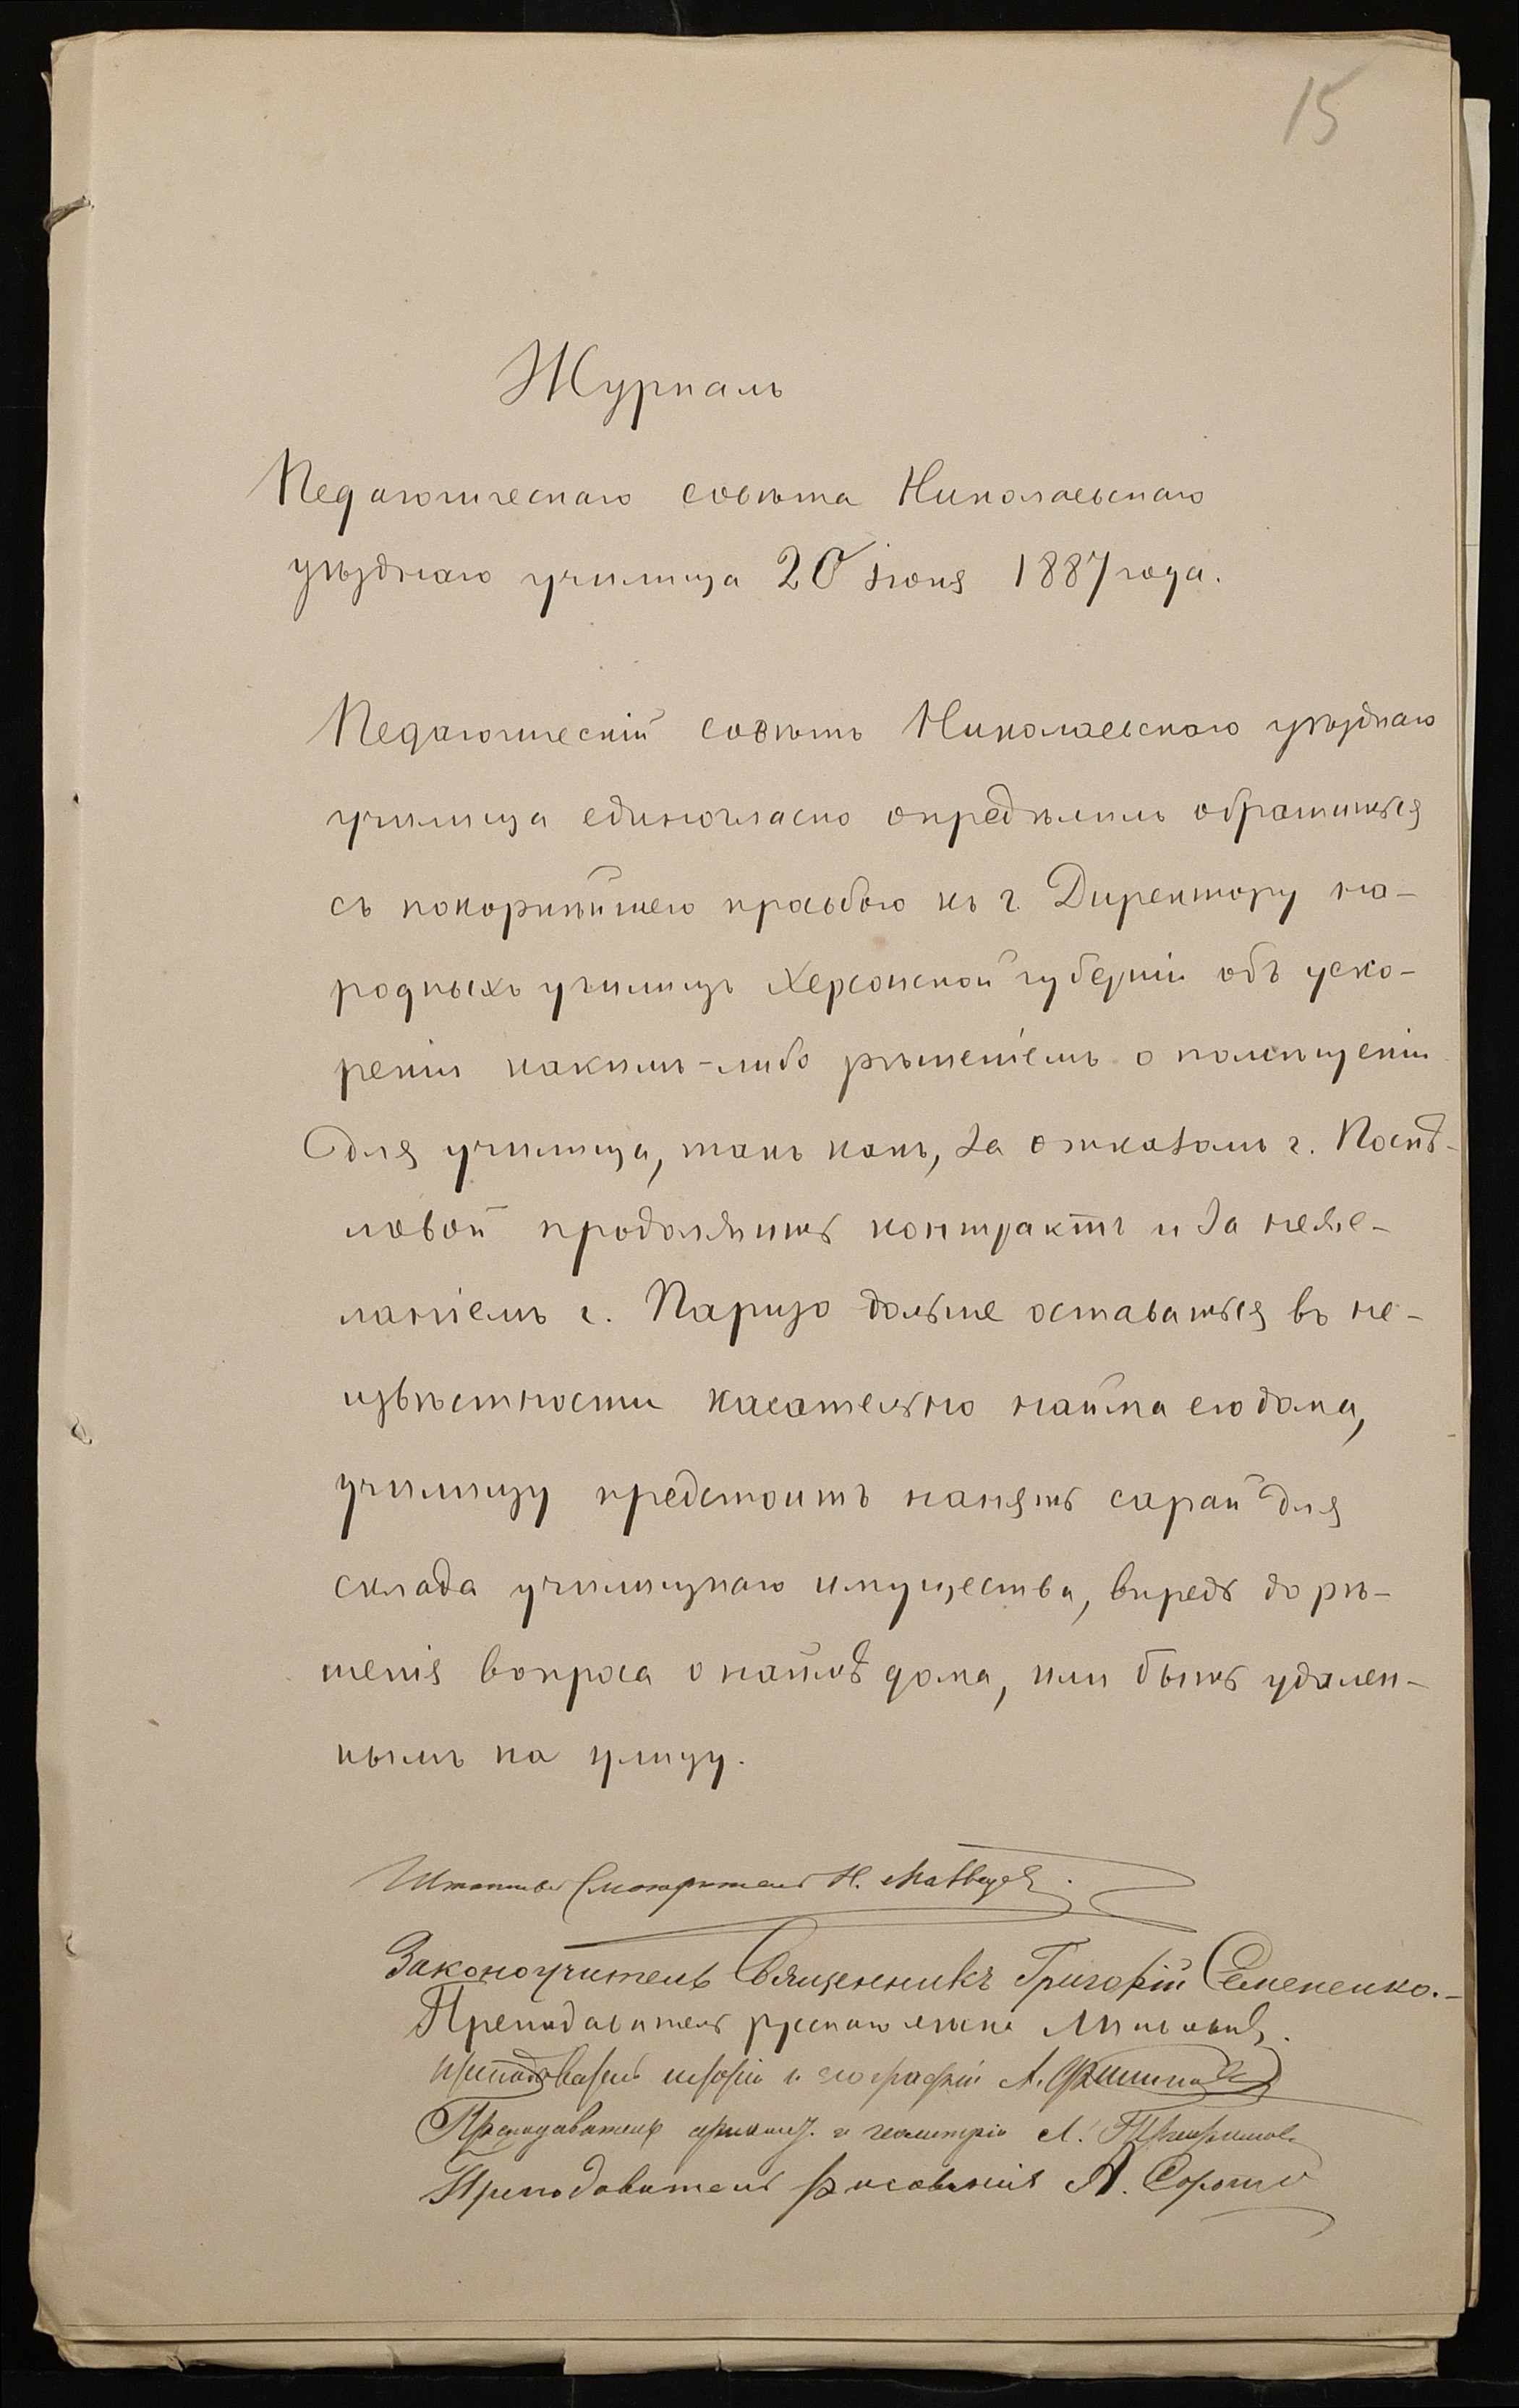 15
Журналъ
Педагогическаго совѣта Николаевскаго
уѣзднаго училища 20 іюня 1887 года.
Педагогическій совѣтъ Николаевскаго уѣзднаго
училища единогласно опредѣлилъ обратиться
съ покорнѣйшею просьбою къ г. Директору на-
родныхъ училищъ Херсонской губерніи объ уско-
реніи какимъ-либо рѣшеніемъ о помѣщеніи
для училища, такъ какъ, за отказомъ г. Поспѣ-
ловой продолжить контрактъ и за неже-
ланіемъ г. Паризо дольше оставаться въ не-
извѣстности касательно найма его дома,
училищу предстоитъ нанять сарай для
склада училищнаго имущества, впредь до рѣ-
шенія вопроса о наймѣ дома, или быть удален-
нымъ на улицу.
Штатный Смотритель Н. Матвѣевъ.
Законоучитель Священникъ Григорій Семененко.-
Преподаватель русскаго языка
Преподаватель исторіи и географіи А.
Преподаватель ариѳмет. и геометріи
Преподаватель рисованія А.